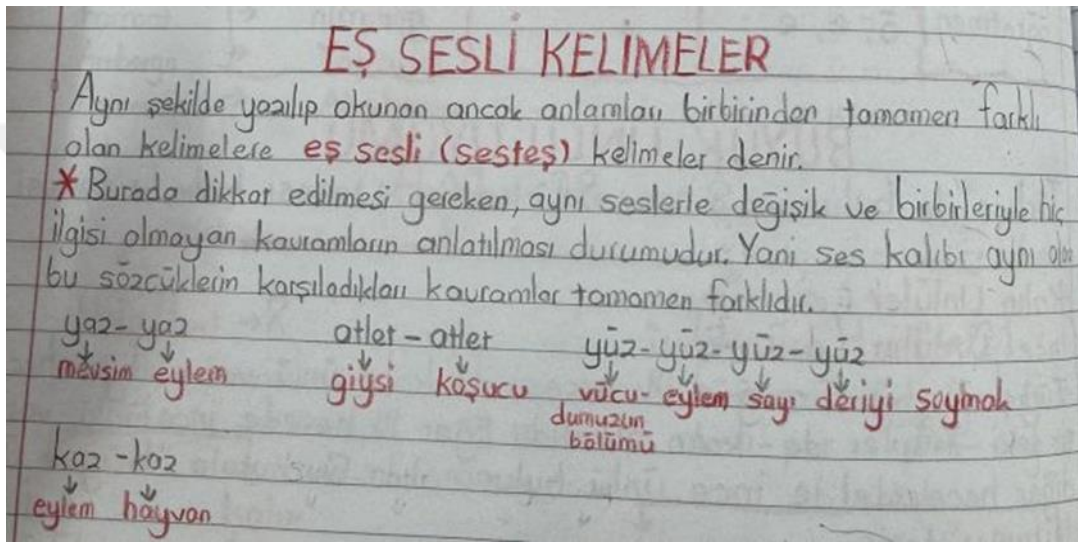 EŞ SESLİ KELİMELER
Aynı şekilde yazılıp okunan ancak anlamları birbirinden tamamen farklı
olan kelimelere eş sesli (sesteş) kelimeler denir.
* Burada dikkat edilmesi gereken, aynı seslerle değişik ve birbirleriyle hiç
ilgisi olmayan kavramların anlatılması durumudur. Yani ses kalıbı aynı olan
bu sözcüklerin karşıladıkları kavramlar tamamen farklıdır.
yaz - yaz atlet - atlet yüz - yüz - yüz - yüz
mevsim eylem giysi koşucu vücu- eylem sayı deriyi soymak
dumuzun
bölümü
kaz - kaz
eylem hayvan